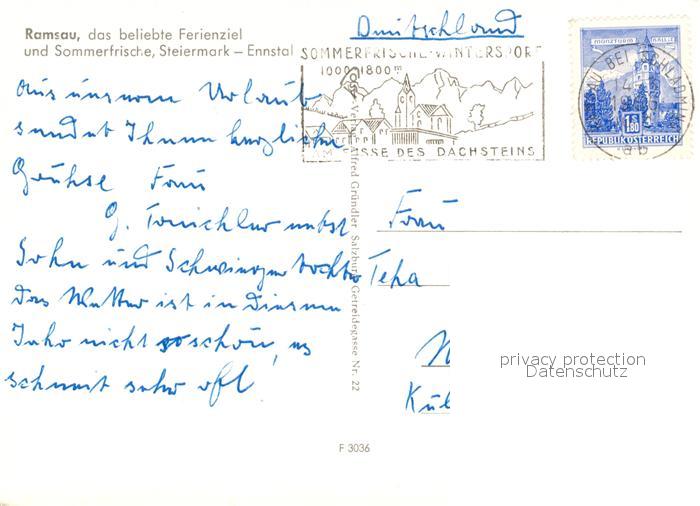 Ramsau, das beliebte Ferienziel
und Sommerfrische, Steiermark – Ennstal
Deutschland
SOMMERFRISCHE-WINTERSPORT
1000-1800m
AM FUSSE DES DACHSTEINS
RAMSAU BEI SCHLADMING
MÜNZTURM HALL
1.80
REPUBLIK ÖSTERREICH
Aus unserem Urlaub
sendet Ihnen herzliche
Grühse Frau
G. nebst
Sohn und Schwiegertochter
Das Wetter ist in diesem
Jahr nicht so schön, es
schneit sehr oft!
Verlag Alfred Gründler Salzburg Getreidegasse Nr. 22
Frau
privacy protection
Datenschutz
F 3036